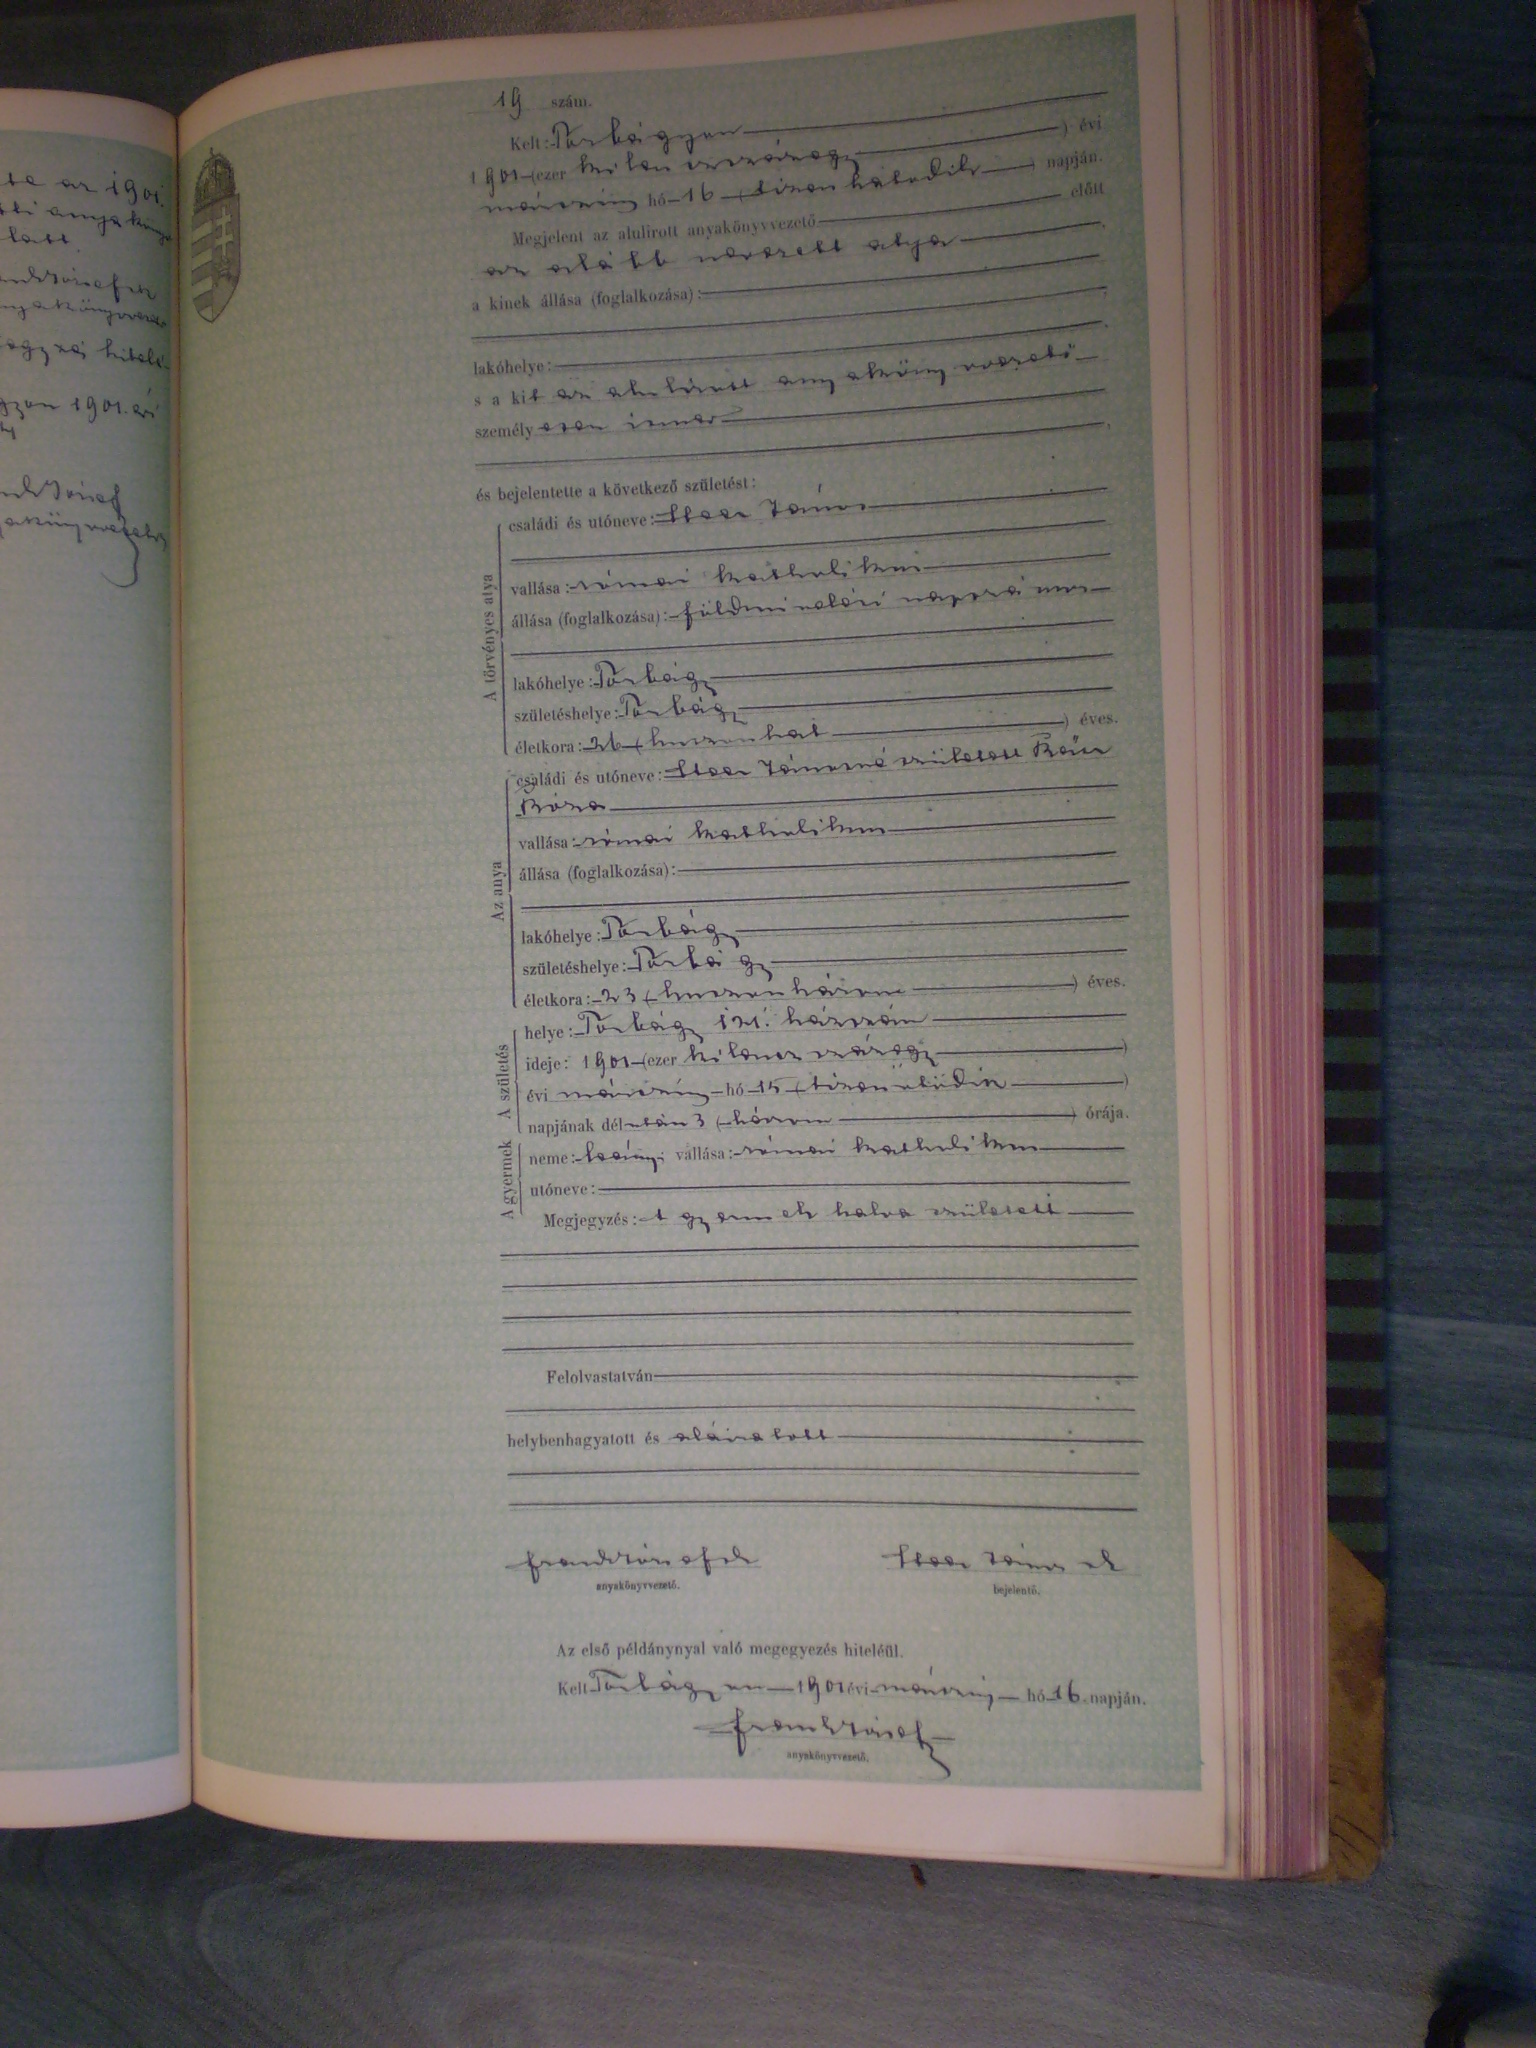 te az 1901.
latt
1901. évi
19 szám.
Kelt: Torbágyon
1901 (ezer kilencszázegy) évi
márczius hó 16 (tizenhatodik) napján.
Megjelent az alulirott anyakönyvvezető előtt
az alább nevezett atya
a kinek állása (foglalkozása):
lakóhelye:
s a kit az alulirott anyakönyvvezető
személyesen ismer
és bejelentette a következő születést:
A törvényes atya
családi és utóneve: János
vallása: római katholikus
állása (foglalkozása): földmivelési napszámos
lakóhelye: Torbágy
születéshelye: Torbágy
életkora: 26 (huszonhat) éves.
Az anya
családi és utóneve: Jánosné született
Róza
vallása: római katholikus
állása (foglalkozása):
lakóhelye: Torbágy
születéshelye: Torbágy
életkora: 23 (huszonhárom) éves.
A születés
helye: Torbágy 121. házszám
ideje: 1901 (ezer kilenczszázegy)
évi márczius hó 15 (tizenötödik)
napjának délután 3 (három) órája.
A gyermek
neme: leány; vallása: római katholikus
utóneve:
Megjegyzés: A gyermek halva született
Felolvastatván
helybenhagyatott és aláiratott
Frank József sk János sk
anyakönyvvezető. bejelentő.
Az első példánynyal való megegyezés hiteléül.
Kelt Torbágyon 1901 évi márczius hó 16 napján.
Frank József
anyakönyvvezető.